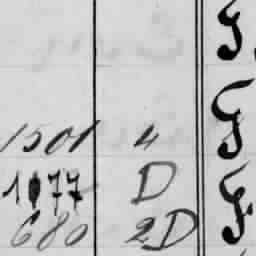 J.
1501 4 G
1077 D F
680 2D